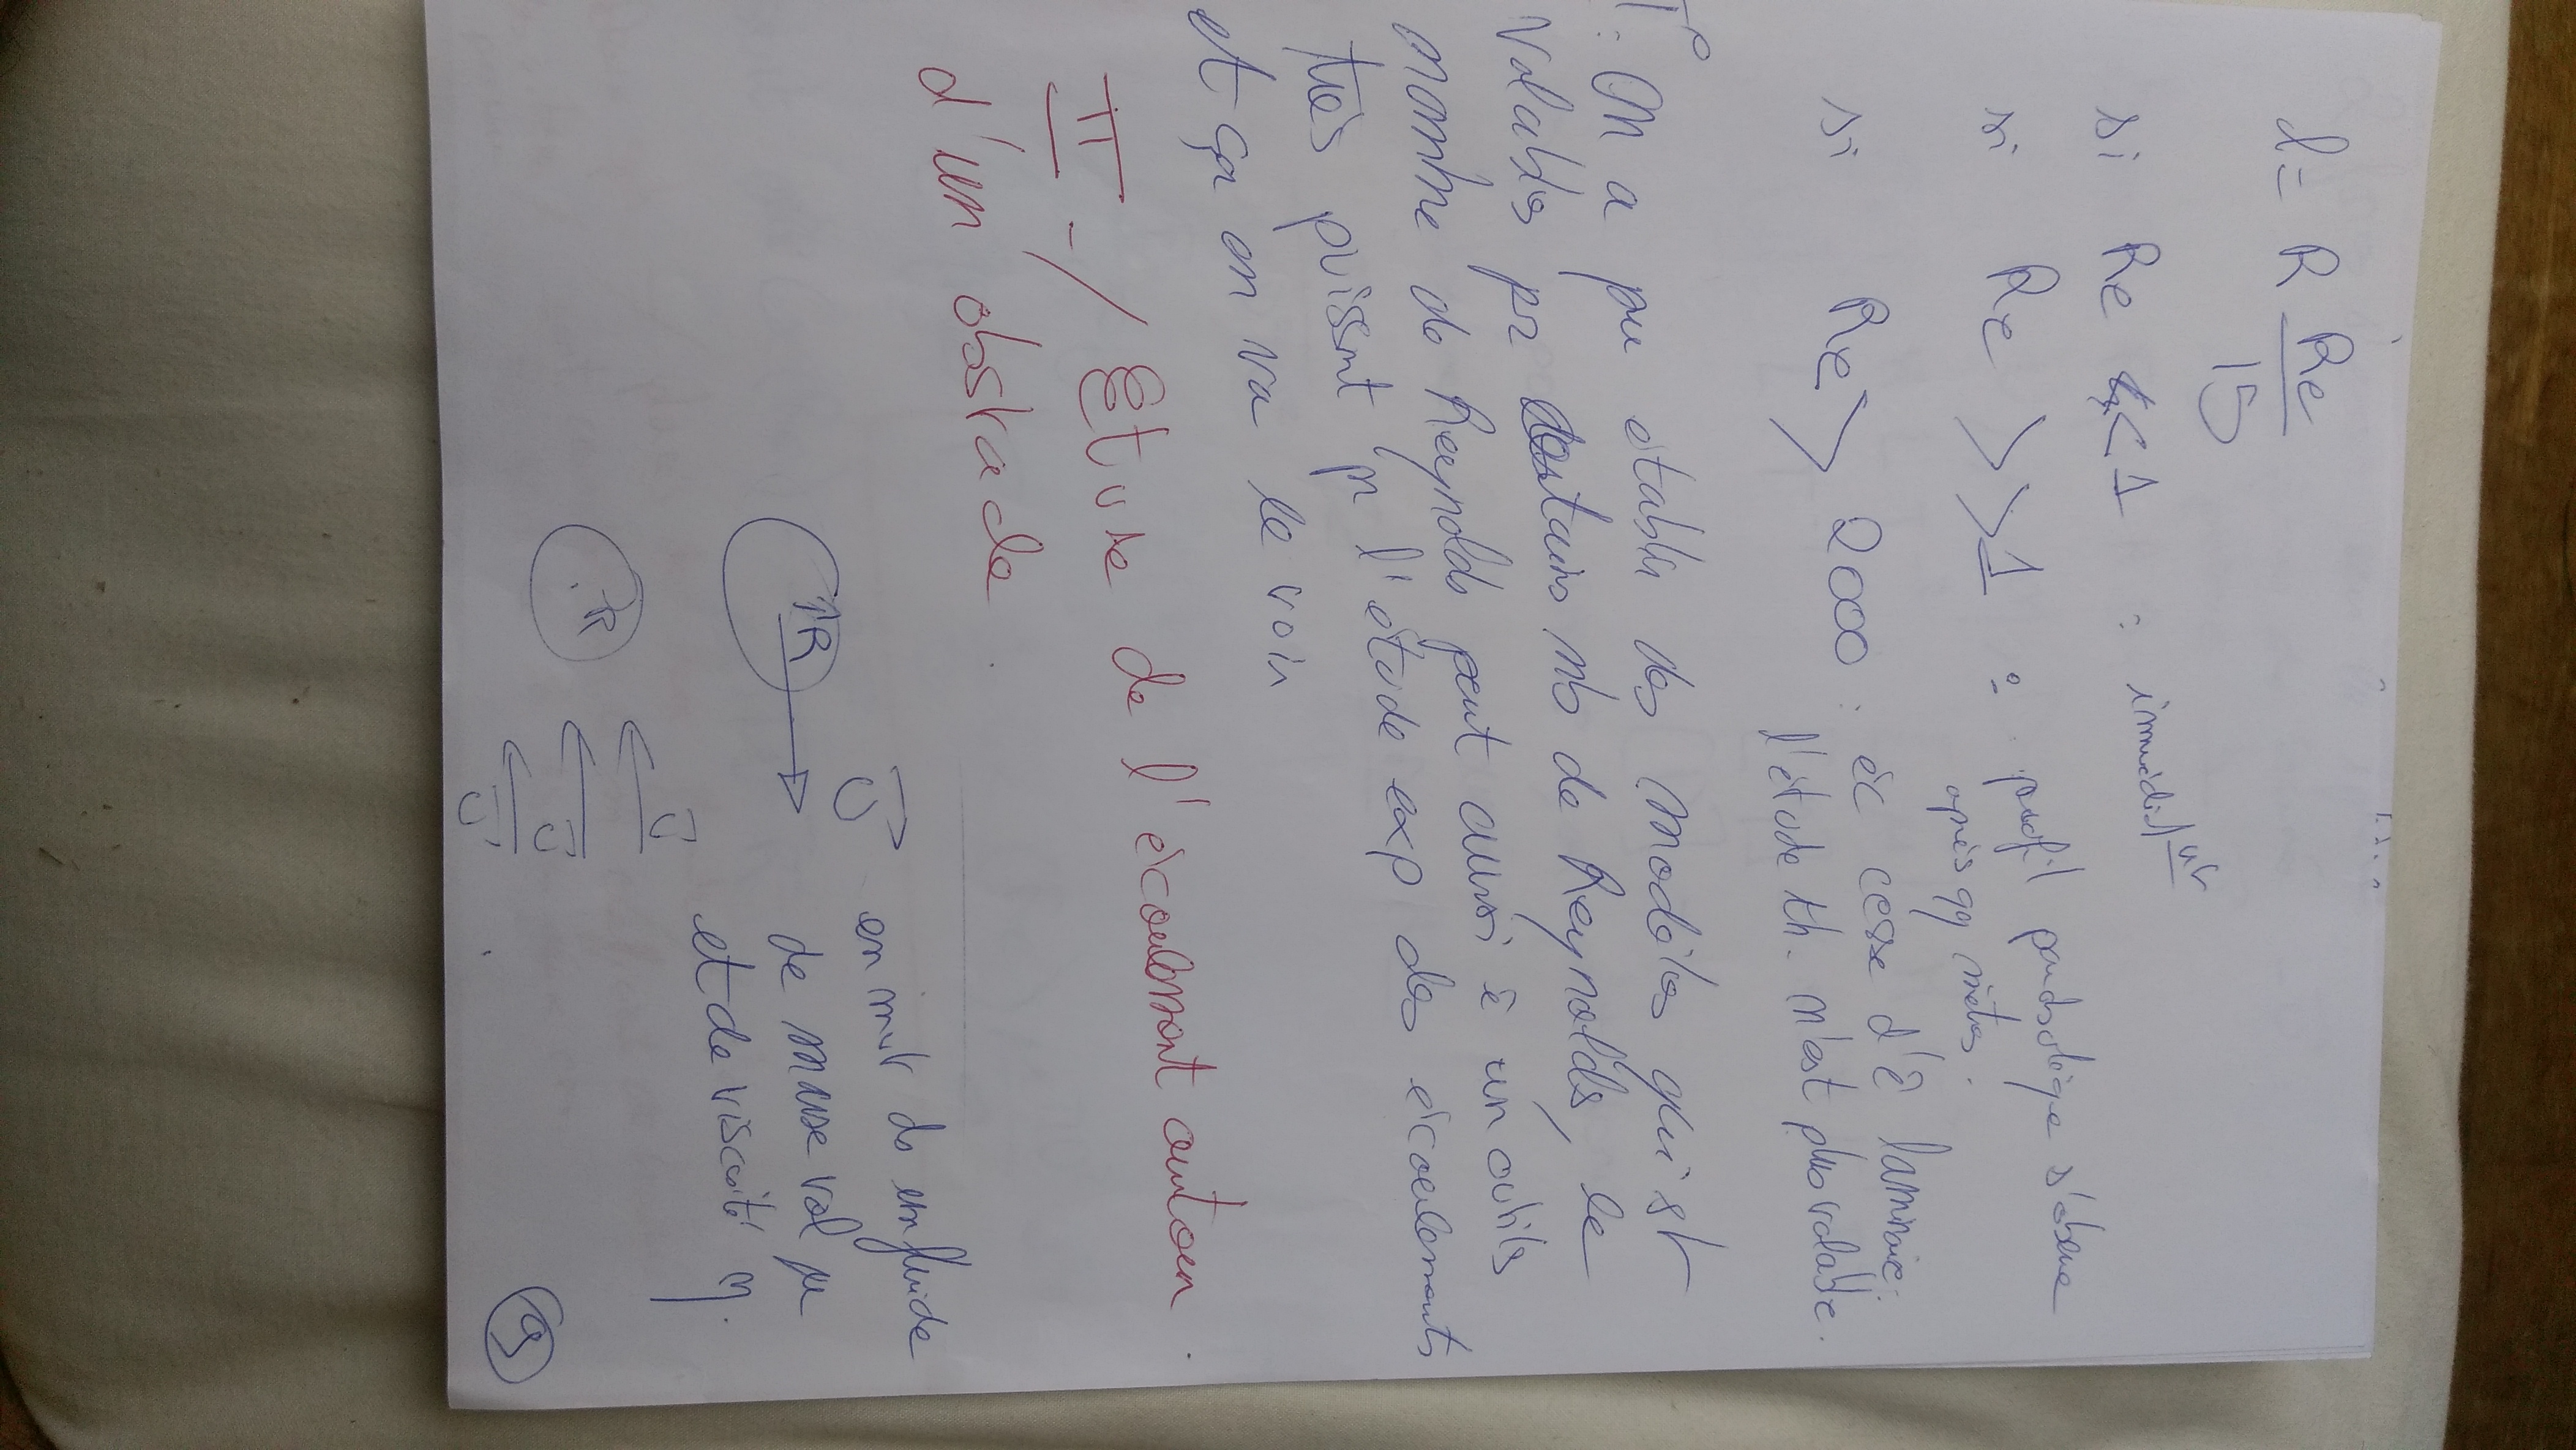 d = R Re/15
si Re << 1 : immédiat
si Re >> 1 : profil parabolique s'observe
après qq mètres.
si Re > 2000 : éc cesse d'ê laminaire;
l'étude th. n'est plus valable.
T°: On a pu établir des modèles qui st
valables pr certains nb de Reynolds, le
nombre de Reynolds peut aussi ê un outils
très puissant pr l'étude exp des écoulements
et ça on va le voir
II -/ Etude de l'écoulement autour
d'un obstacle.
R U en mvt ds un fluide
de masse vol μ
et de viscosité η.
R U U U
9